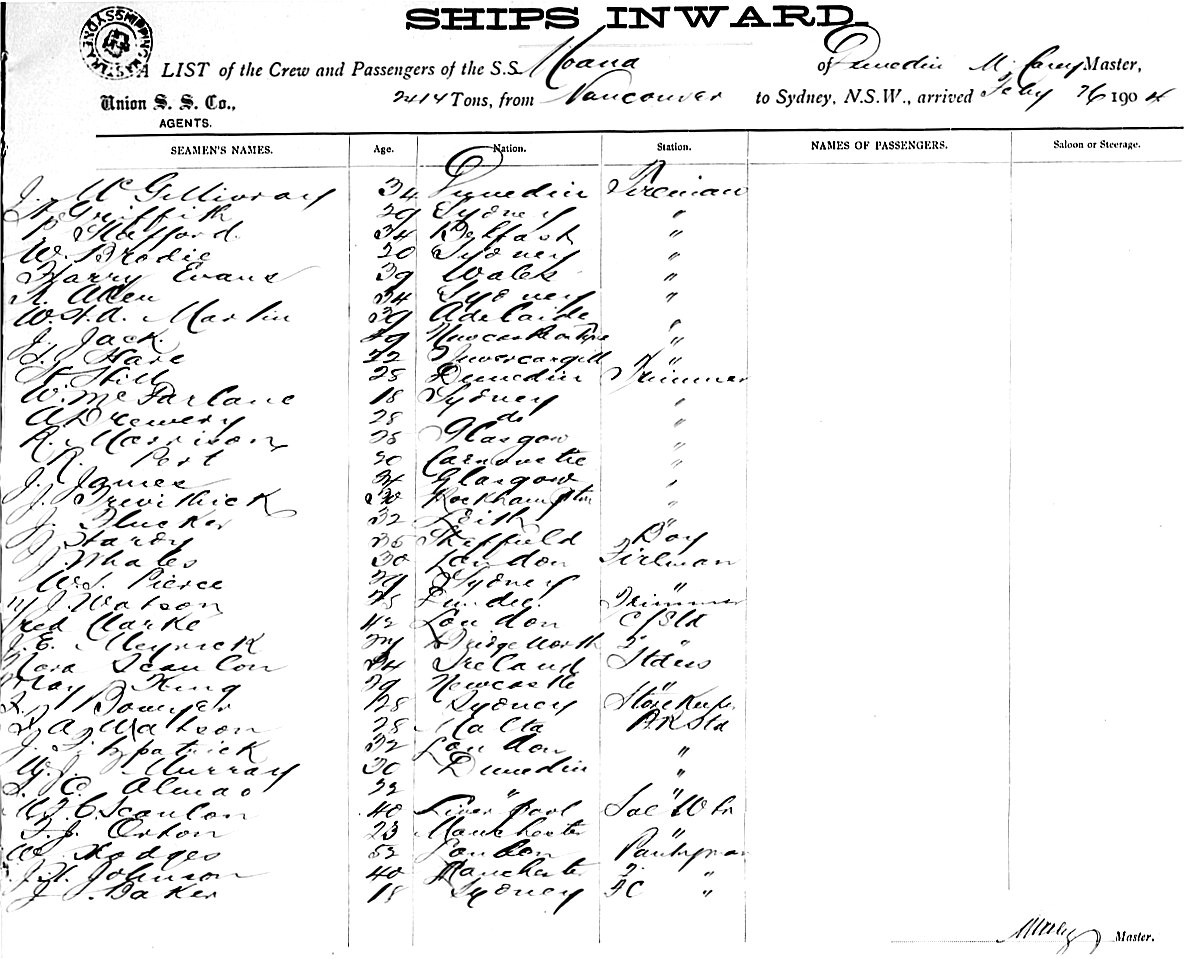 SHIPS INWARD.
A LIST of the Crew and Passengers of the S.S. Moana of Dunedin M. Carey Master,
Union S. S. Co., 2414 Tons, from Vancouver to Sydney, N.S.W., arrived Feby 26 1904
AGENTS.
SEAMEN'S NAMES. Age. Nation. Station. NAMES OF PASSENGERS. Saloon or Steerage.
J. McGillivray 34 Dunedin Fireman
Griffith 29 Sydney "
P. Stafford 34 Belfast "
W. Brodie 20 Sydney "
Harry Evans 39 Wales "
A. Allen 34 Sydney "
W. St. A. Martin 39 Adelaide "
J. Jack. Newcastle on Tyne "
Hare 22 Invercargill "
Still 25 Dunedin Trimmer
W. McFarlane 18 Sydney "
A Drewery 28 do "
R. Morrison 28 Glasgow "
R. Pert "
J. James 34 Glasgow "
J. Trevithick 30 Rockhampton "
J. Plucker 32 Leith "
J Hardy 36 Sheffield Boy
J. Whales 30 London Fireman
W. S. Pierce 39 Sydney "
J. Watson 25 Dundee. Trimmer
Fred Clarke 42 London C/Std
J. E. Meyrick Bridge North 2 "
Nora Scanlon 34 Ireland Stdess
May King 29 Newcastle "
Bowyer 28 Sydney Storekeeper
A. Watson 28 Malta Std
J. Fitzpatrick 32 London "
W. J. Murray 30 Dunedin "
C. Almao 22 " "
Scanlon 40 Liverpool Sal Wtr
J. Orton 23 Manchester "
W Hodges 52 London Pantryman
J. H. Johnson 40 Manchester 2 "
J. Baker 18 Sydney "
Master.